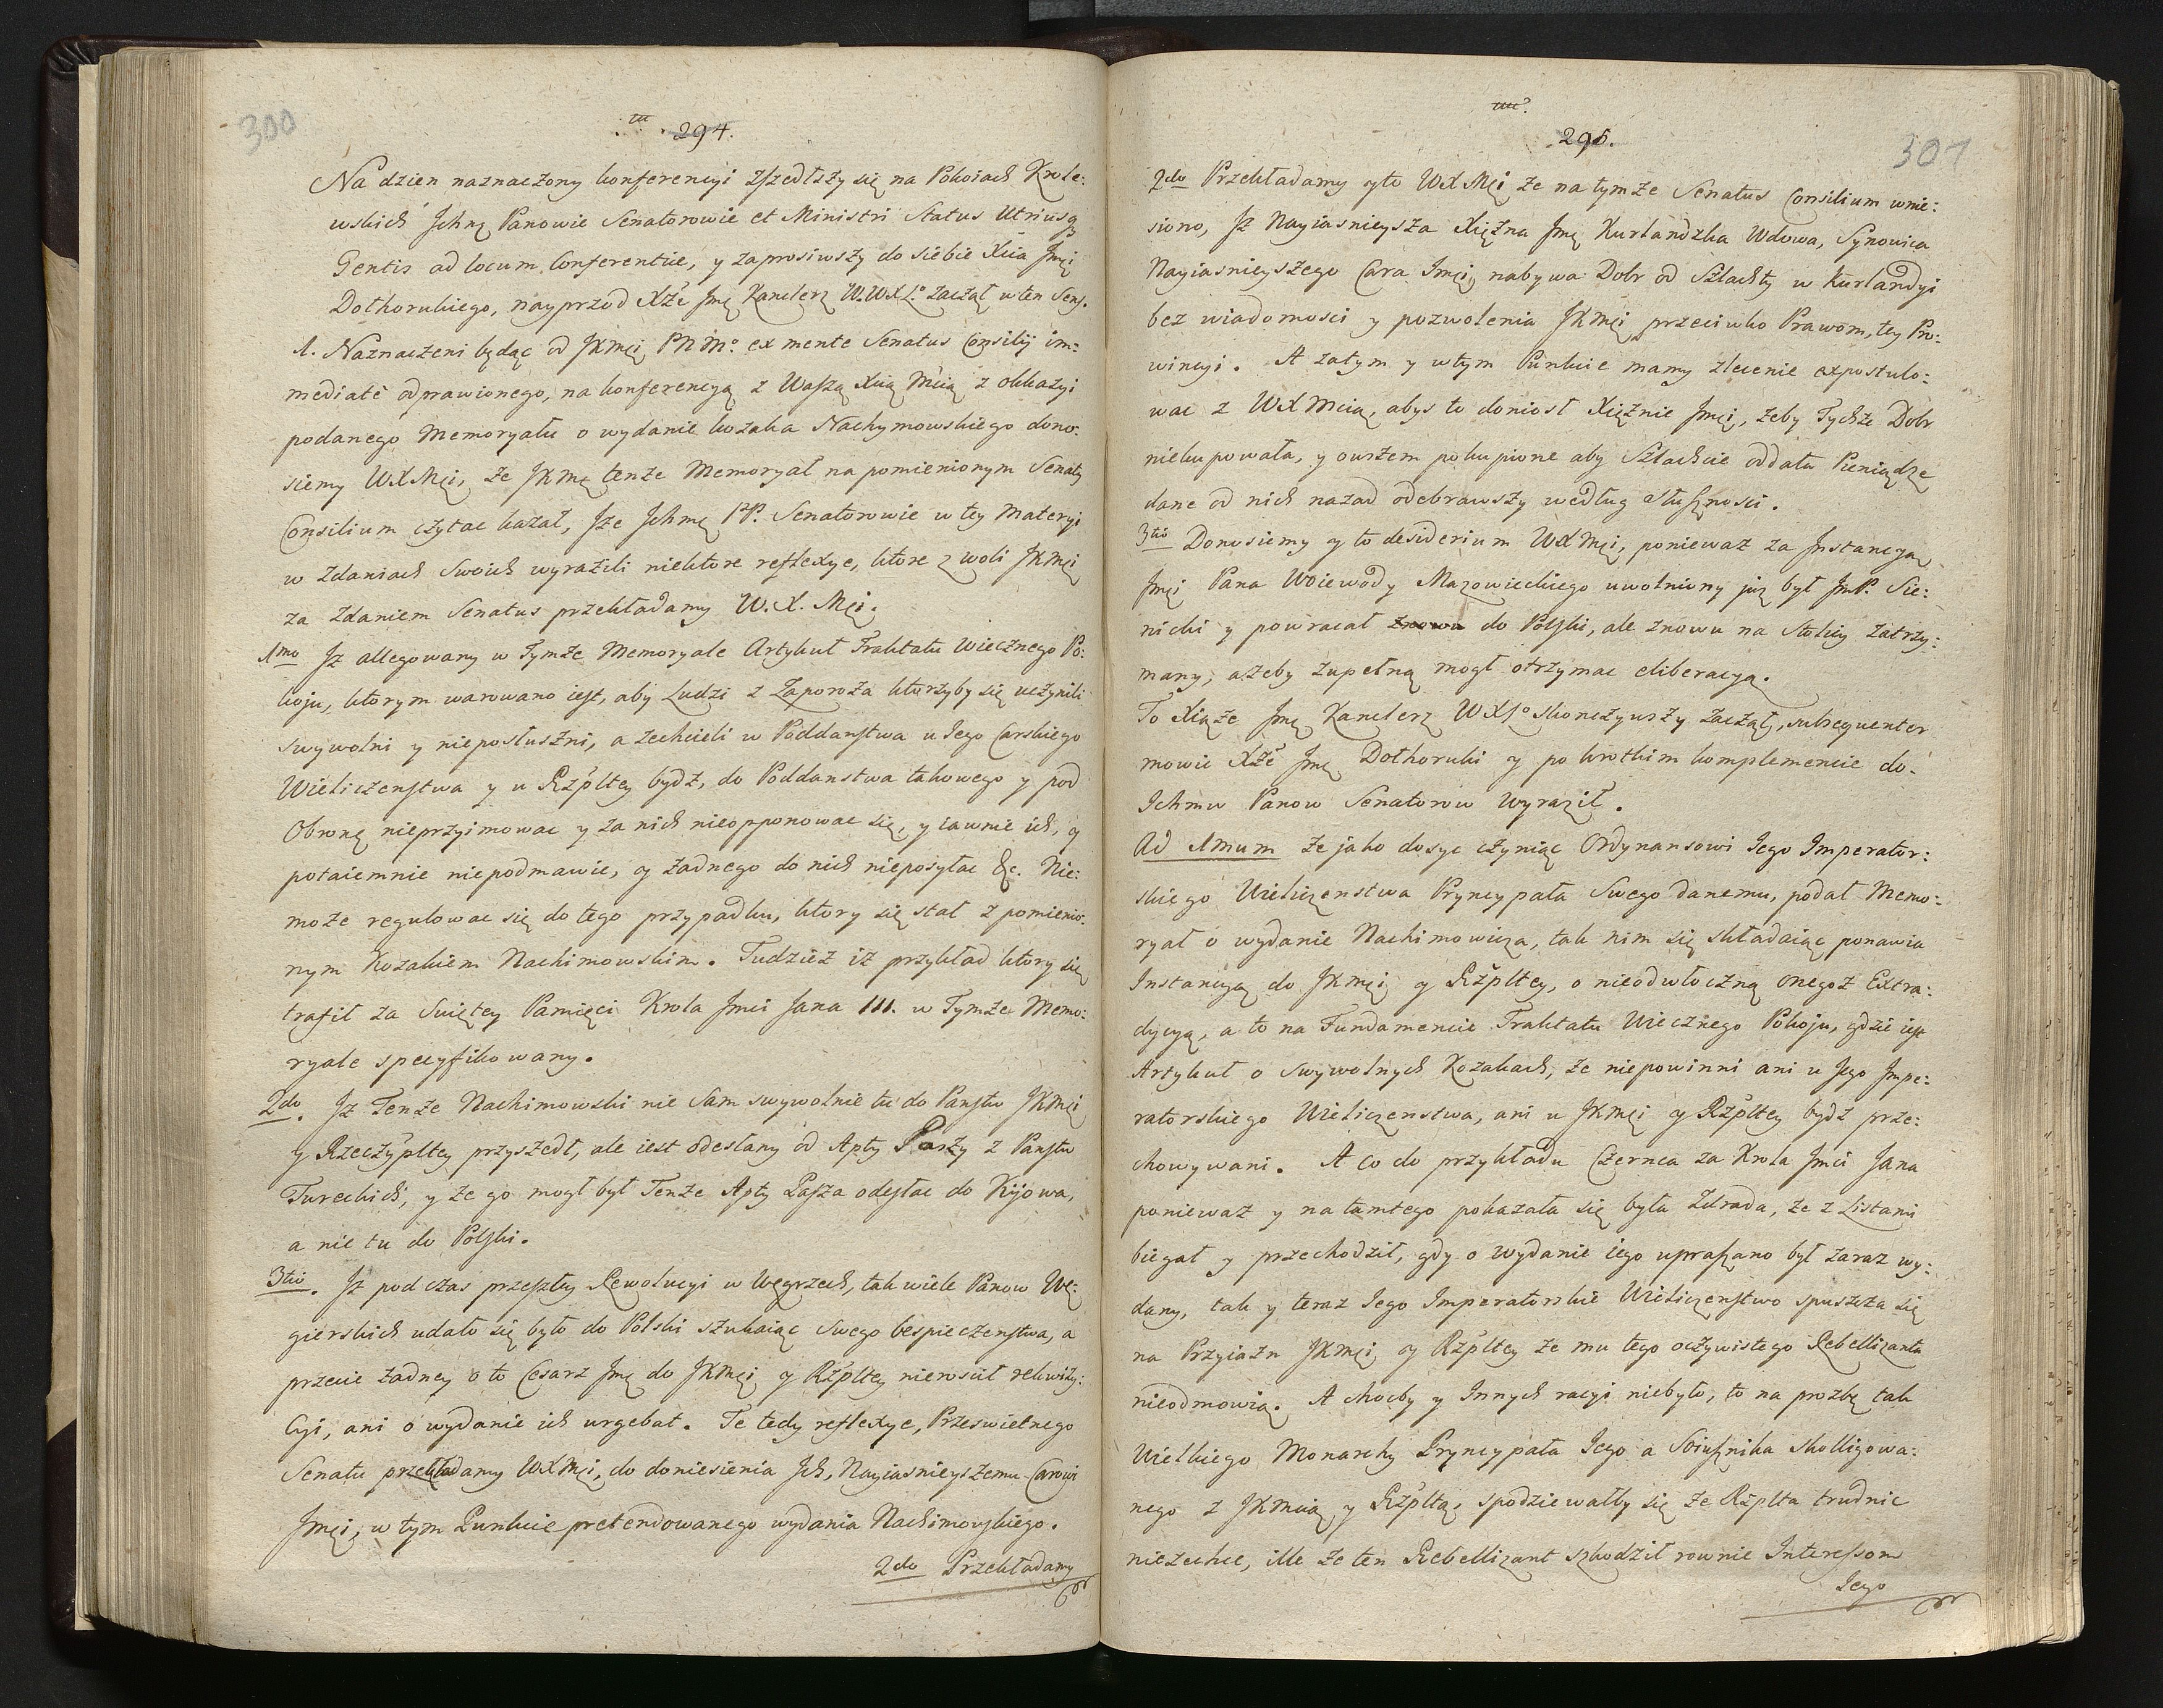 300
294.
Na dzien naznaczony konferencyi zszedłszy się na Pokoiach Krole:
wskich Jchmę Panowie Senatorowie et Ministri Status Utriusq
Gentis ad locum Conferentiæ, y zaprosiwszy do siebie Xcia Jmci
Dołhorukiego, nayprzod Xże Jmę Kanclerz W.WXL.o zaczął w ten Sens.
1. Naznaczeni będąc od JKMci PNMo. ex mente Senatus Consilij im:
mediatè odprawionego, na konferencyą z Waszą Xcią Mcią z okkazyi
podanego Memoryału o wydanie kozaka Nachymowskiego dono:
siemy WXMci, że JKMę tenże Memoryał na pomienionym Senatq
Consilium czytac kazał, Jże Jchmę PP. Senatorowie w tey materyi
w Zdaniach Swoich wyrazili niektore reflexye, ktore z woli JKMci
za Zdaniem Senatus przekładamy W.X.Mci.
1mo Jż allegowany w Tymże Memoryale Artykuł Traktatu Wiecznego Po:
koju, ktorym warowano iest, aby Ludzi z Zaporoża ktorzyby się uczynili
swywolni y nieposłuszni, a zechcieli w Poddanstwa u Jego Carskiego
Wieliczenstwa y u Rzpltey bydz, do Poddanstwa takowego y pod
Obronę nieprzyimowac y za nich nieopponowac się, y iawnie ich, y
potaiemnie niepodmawic, y żadnego do nich nieposyłac &c. Nie:
może regulowac się do tego przypadku, ktory się stał z pomienio:
nym Kozakiem Nachimowskim. Tudzież iż przykład ktory się
trafił za Swiętey Pamięci Krola Jmci Jana III. w Tymże Memo:
ryale specyfikowany.
2do. Jż Tenże Nachimowski nie Sam swywolnie tu do Panstw JKMci
y Rzeczypltey przyszedł, ale iest odesłany od Apty Paszy z Panstw
Tureckich, y że go mogł był Tenże Apty Pasza odesłac do Kijowa,
a nie tu do Polski.
3tio. Jż pod czas przeszłey Rewolucyi w Węgrzech, tak wiele Panow We:
gierskich udało się było do Polski szukaiąc Swego bespieczenstwa, a
przecie żadney o to Cesarz Jmę do JKMci y Rzpltey nierościł rekwizy:
cyi, ani o wydanie ich urgebat. Te tedy reflexye, Przeswietnego
Senatu przekładamy WXMci, do doniesienia Jch, Nayiasnieyszemu Carowi
Jmci, w tym Punkcie pretendowanego wydania Nachimowskiego.
2do Przekładamy
295.
301
2do Przekładamy y to WXMci że na tymże Senatus Consilium wnie:
siono, Jż Nayiasnieysza Xiężna Jmę Kurlandzka Wdowa, Synowica
Nayiasnieyszego Cara Jmci, nabywa Dobr od Szlachty w Kurlandyi
bez wiadomosci y pozwolenia JKMci przeciwko Prawom, tey Pro:
wincyi. A zatym y w tym Punkcie mamy zlecenie expostulo:
wac z WXMcią, abys to doniosł Xiężnie Jmci, żeby Tychże Dobr
niekupowała, y owszem pokupione aby Szlachcie oddała Pieniądze
dane od nich nazad odebrawszy według słusznosci.
3tio Donosiemy y to desiderium WXMci, poniewaz za Jnstancyą
Jmci Pana Woiewody Mazowieckiego uwolniony już był JmP. Sie:
nicki y powracał znowu do Polski, ale znowu na Stolicy zatrzy:
many, ażeby zupełną mogł otrzymac eliberacyą.
To Xiąże Jmę Kanclerz WXLo skonczywszy zaczął, subsequenter
mowic Xże Jmę Dołhoruki y po krotkim komplemencie do
Jchmw Panow Senatorow wyraził.
Ad 1mum że jako dosyc czyniąc Ordynansowi Jego Imperator:
skiego Wieliczenstwa Pryncypała Swego danemu, podał Memo:
ryał o wydanie Nachimowicza, tak nim się składaiąc ponawia
Instancyą do JKMci y Rzpltey, o nieodwłoczną onegoż Extra:
dycyą, a to na Fundamencie Traktatu Wiecznego Pokoju, gdzie iest
Artykuł o Swywolnych Kozakach, że niepowinni ani u Jego Impe:
ratorskiego Wieliczenstwa, ani u JKMci y Rzpltey bydz prze:
chowywani. A co do przykładu Czernca za Krola Jmci Jana
poniewaz y na tamtego pokazała się była Zdrada, że z Listami
biegał y przechodził, gdy o wydanie iego upraszano był zaraz wy:
dany, tak y teraz Jego Imperatorskie Wieliczenstwo spuszcza się
na Przyiazn JKMci y Rzpltey że mu tego oczywistego Rebellizanta
nieodmowią. A chocby y Innych racyi niebyło, to na prozbę tak
Wielkiego Monarchy Pryncypała Jego a Soiusznika skolligowa:
nego z JKMcią y Rzpltą, spodziewałby się że Rzplta trudnic
niezechce, ille że ten Rebellizant szkodził rownie Interessom
Jego